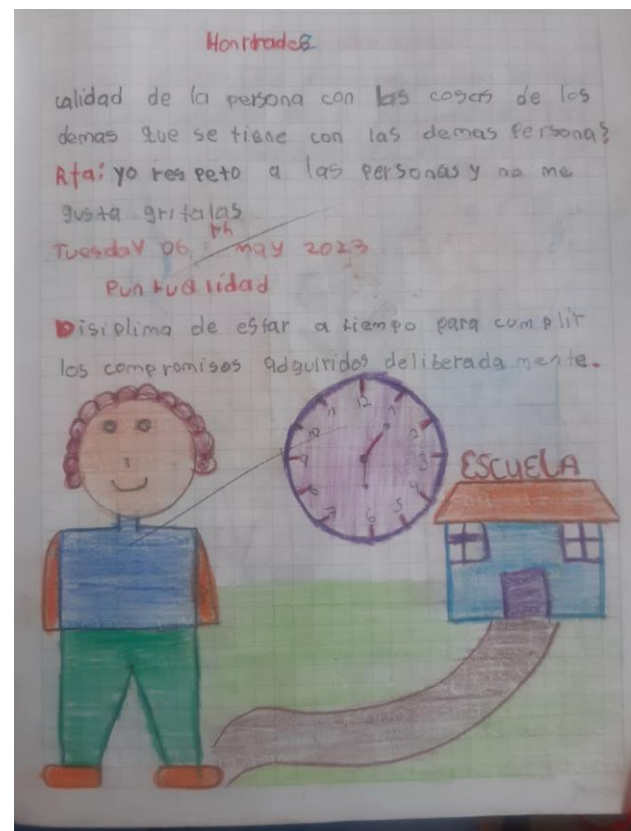 Honrradez
calidad de la persona con las cosas de los
demas que se tiene con las demas Persona?
Rta: yo respeto a las personas y no me
gusta gritalas
Tuesday 06 th may 2023
Puntualidad
Disiplima de estar a tiempo para cumplir
los compromisos adquiridos deliberada mente.
12
1
2
3
4
5
6
7
8
9
10
11
ESCUELA